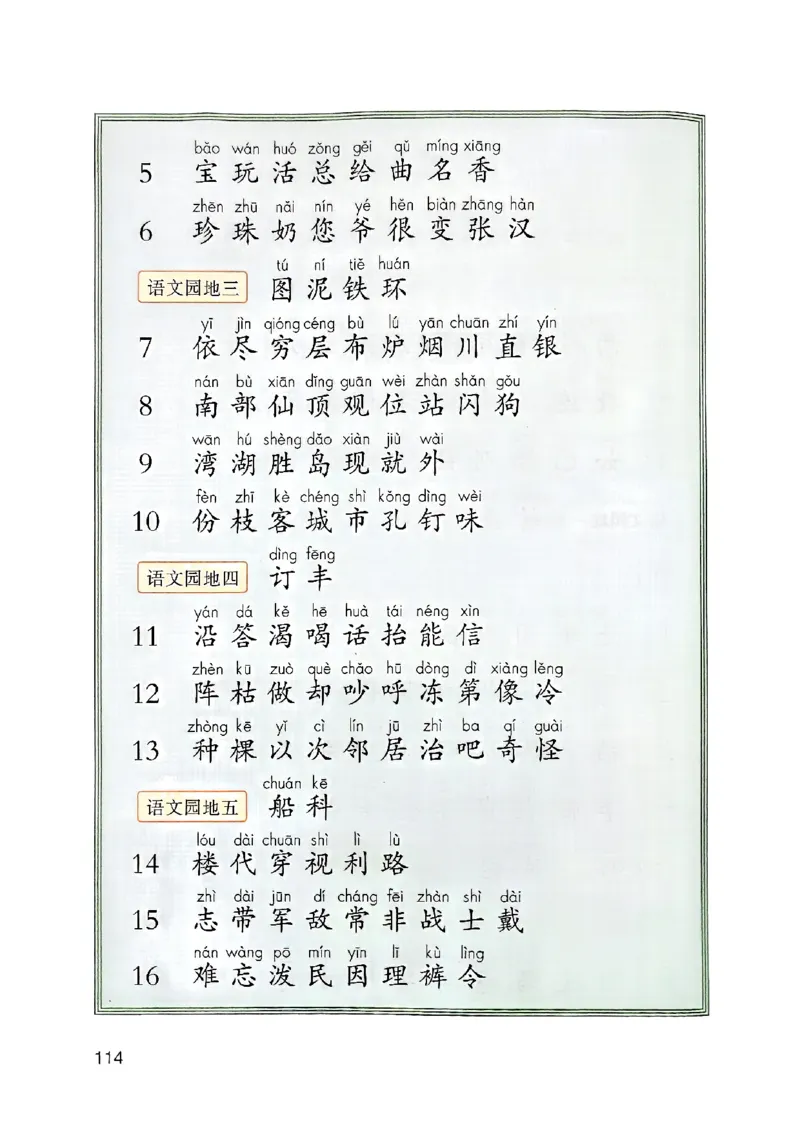 bǎo wán huó zǒng gěi qǔ míng xiāng
5 宝 玩 活 总 给 曲 名 香
zhēn zhū nǎi nín yé hěn biàn zhāng hàn
6 珍 珠 奶 您 爷 很 变 张 汉
tú ní tiě huán
语文园地三 图 泥 铁 环
yī jìn qióng céng bù lú yān chuān zhí yín
7 依 尽 穷 层 布 炉 烟 川 直 银
nán bù xiān dǐng guān wèi zhàn shǎn gǒu
8 南 部 仙 顶 观 位 站 闪 狗
wān hú shèng dǎo xiàn jiù wài
9 湾 湖 胜 岛 现 就 外
fèn zhī kè chéng shì kǒng dīng wèi
10 份 枝 客 城 市 孔 钉 味
dìng fēng
语文园地四 订 丰
yán dá kě hē huà tái néng xìn
11 沿 答 渴 喝 话 抬 能 信
zhèn kū zuò què chǎo hū dòng dì xiàng lěng
12 阵 枯 做 却 吵 呼 冻 第 像 冷
zhòng kē yǐ cì lín jū zhì ba qí guài
13 种 棵 以 次 邻 居 治 吧 奇 怪
chuán kē
语文园地五 船 科
lóu dài chuān shì lì lù
14 楼 代 穿 视 利 路
zhì dài jūn dí cháng fēi zhàn shì dài
15 志 带 军 敌 常 非 战 士 戴
nán wàng pō mín yīn lǐ kù lìng
16 难 忘 泼 民 因 理 裤 令
114